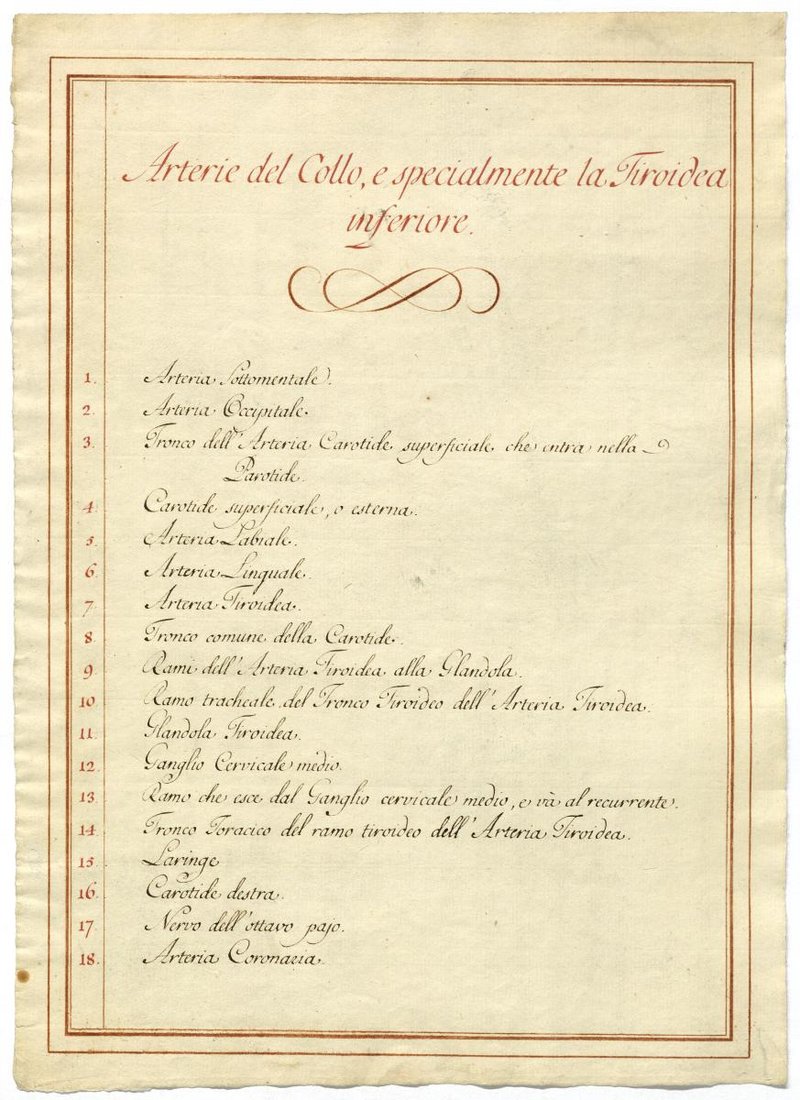 Arterie del Collo, e specialmente la Tiroidea
inferiore.
1. Arteria Sottomentale.
2. Arteria Occipitale.
3. Tronco dell'Arteria Carotide superficiale che intra nella
Parotide.
4. Carotide superficiale, o esterna.
5. Arteria Labiale.
6. Arteria Linguale.
7. Arteria Tiroidea.
8. Tronco comune della Carotide.
9. Rami dell'Arteria Tiroidea alla Glandola.
10. Ramo tracheale del Tronco Tiroideo dell'Arteria Tiroidea.
11. Glandola Tiroidea.
12. Ganglio Cervicale medio.
13. Ramo che esce dal Ganglio cervicale medio, e và al recurrente.
14. Tronco Toracico del ramo tiroideo dell'Arteria Tiroidea.
15. Laringe
16. Carotide destra.
17. Nervo dell'ottavo pajo.
18. Arteria Coronaria.